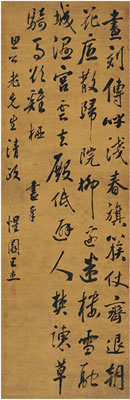 晝刻傳呼淺春旗簇仗齊退朝
花底散歸院柳邊迷樓雪融
城濕宮雲去殿低避人焚諫草
騎馬欲雞棲 書奉
公老先生清政
惺園王杰